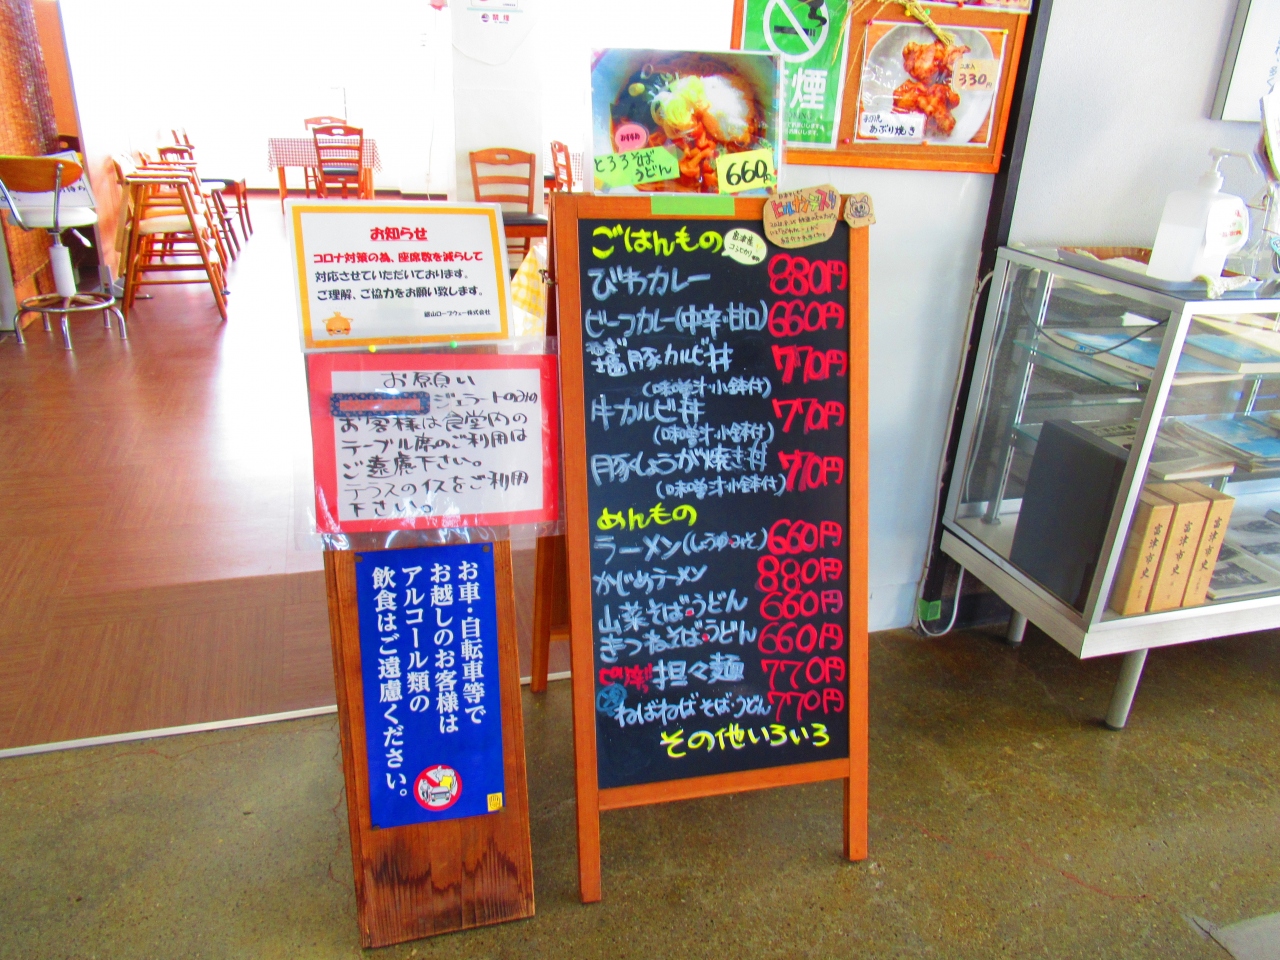 お知らせ
コロナ対策の為、座席数を減らして
対応させていただいております。
ご理解、ご協力をお願い致します。
鋸山ロープウェー株式会社
お願い
ジェラートのみの
お客様は食堂内の
テーブル席のご利用は
ご遠慮下さい。
テラスのイスをご利用
下さい。
お車・自転車等で
お越しのお客様は
アルコール類の
飲食はご遠慮ください。
おすすめ
とろろそば
うどん
660円
ごはんもの
びわカレー 880円
ビーフカレー(中辛・甘口) 660円
ねぎ塩豚カルビ丼 770円
(味噌汁・小鉢付)
牛カルビ丼 770円
(味噌汁・小鉢付)
豚しょうが焼き丼 770円
(味噌汁・小鉢付)
めんもの
ラーメン(しょうゆ・みそ) 660円
かじめラーメン 880円
山菜そば・うどん 660円
きつねそば・うどん 660円
ピリ辛!!担々麺 770円
ねばねばそば・うどん 770円
その他いろいろ
煙
二本入
330円
あぶり焼き
富津市史
富津市史
富津市史